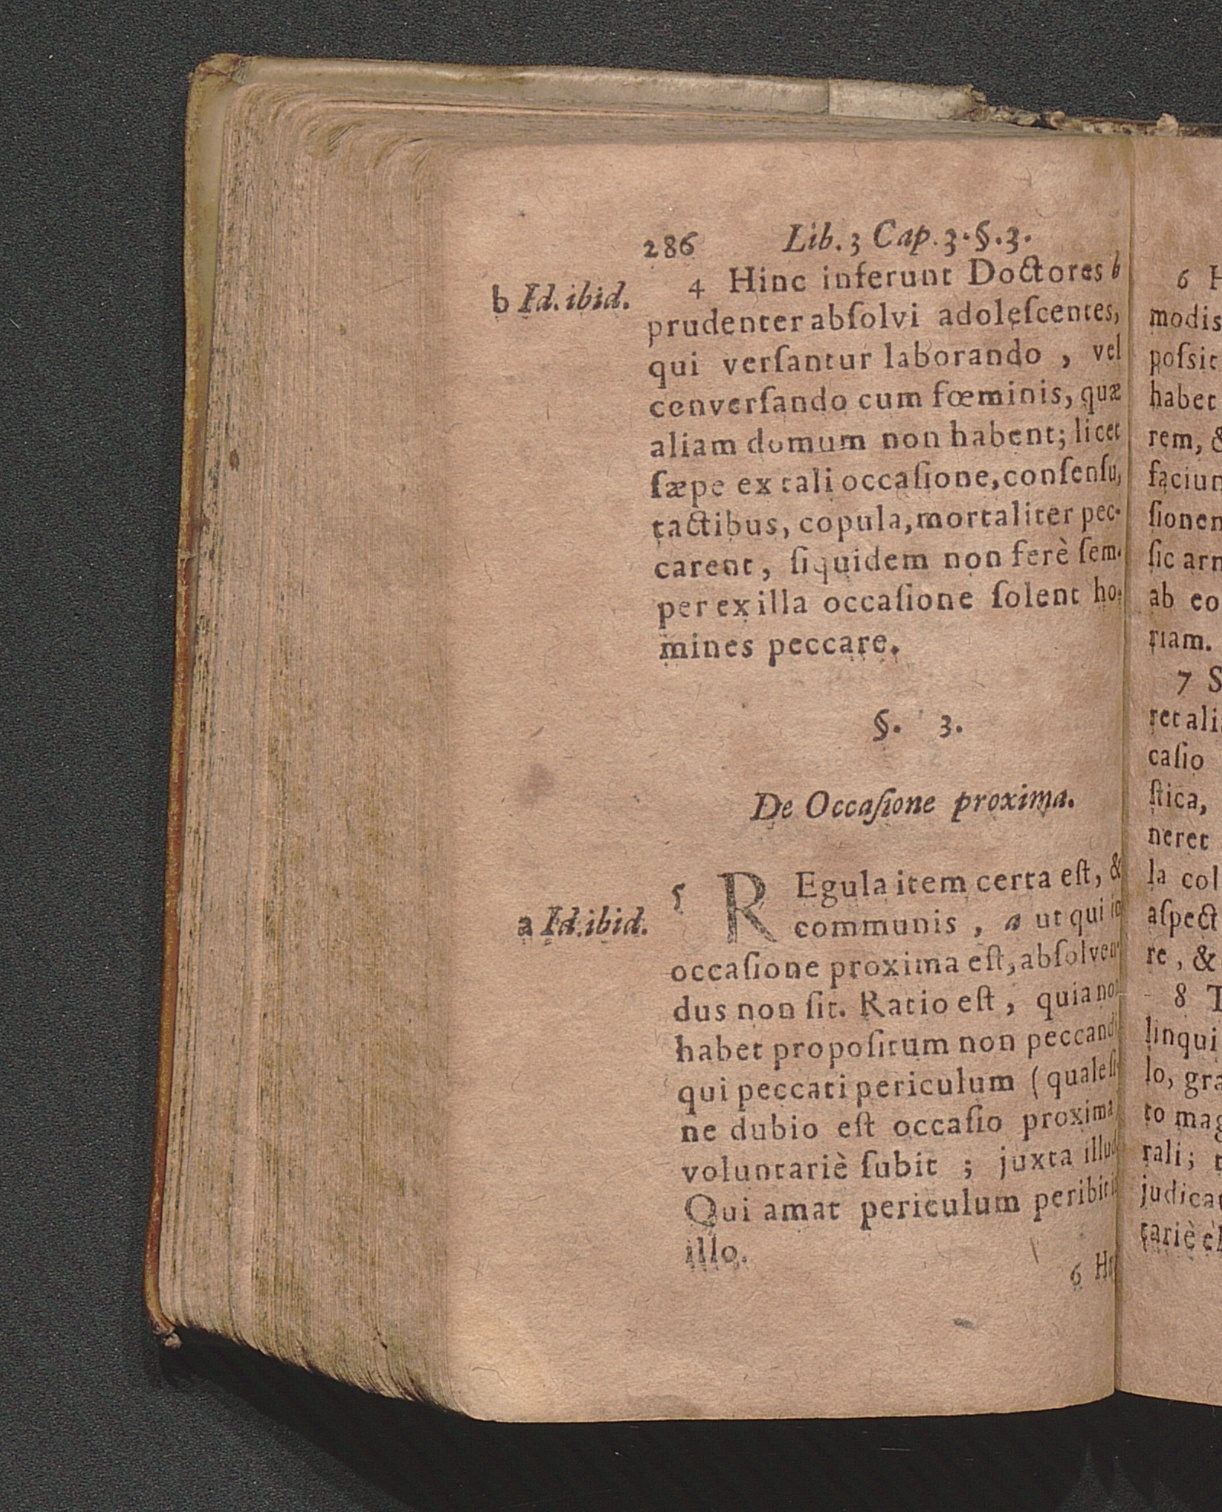 286 Lib. 3 Cap. 3. §. 3.
b Id. ibid.
4 Hinc inferunt Doctores b
prudenter abſolvi adoleſcentes,
qui verſantur laborando , vel
converſando cum fœminis, quæ
aliam domum non habent; licet
ſæpe ex tali occaſione, conſenſu,
tactibus, copula, mortaliter pec-
carent, ſiquidem non ferè ſem-
per ex illa occaſione ſolent ho-
mines peccare.
§. 3.
De Occaſione proxima.
a Id. ibid.
5 REgula item certa eſt, &
communis , a ut qui in
occaſione proxima eſt, abſolven-
dus non ſit. Ratio eſt , quia non
habet propoſitum non peccandi
qui peccati periculum (quale ſi-
ne dubio eſt occaſio proxima
voluntariè ſubit ; juxta illud
Qui amat periculum peribit in
illo.
6
6
modis
poſsit
habet
rem, &
ſionem
ab eo
riam.
7
caſio
ſtica,
neret
la
re , &
8
lo,
rali;